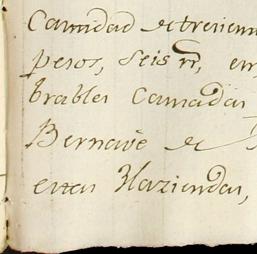 Cantidad de trescien
pesos, seis rr, en
brables Camadas
Bernavè de
estas Haziendas,